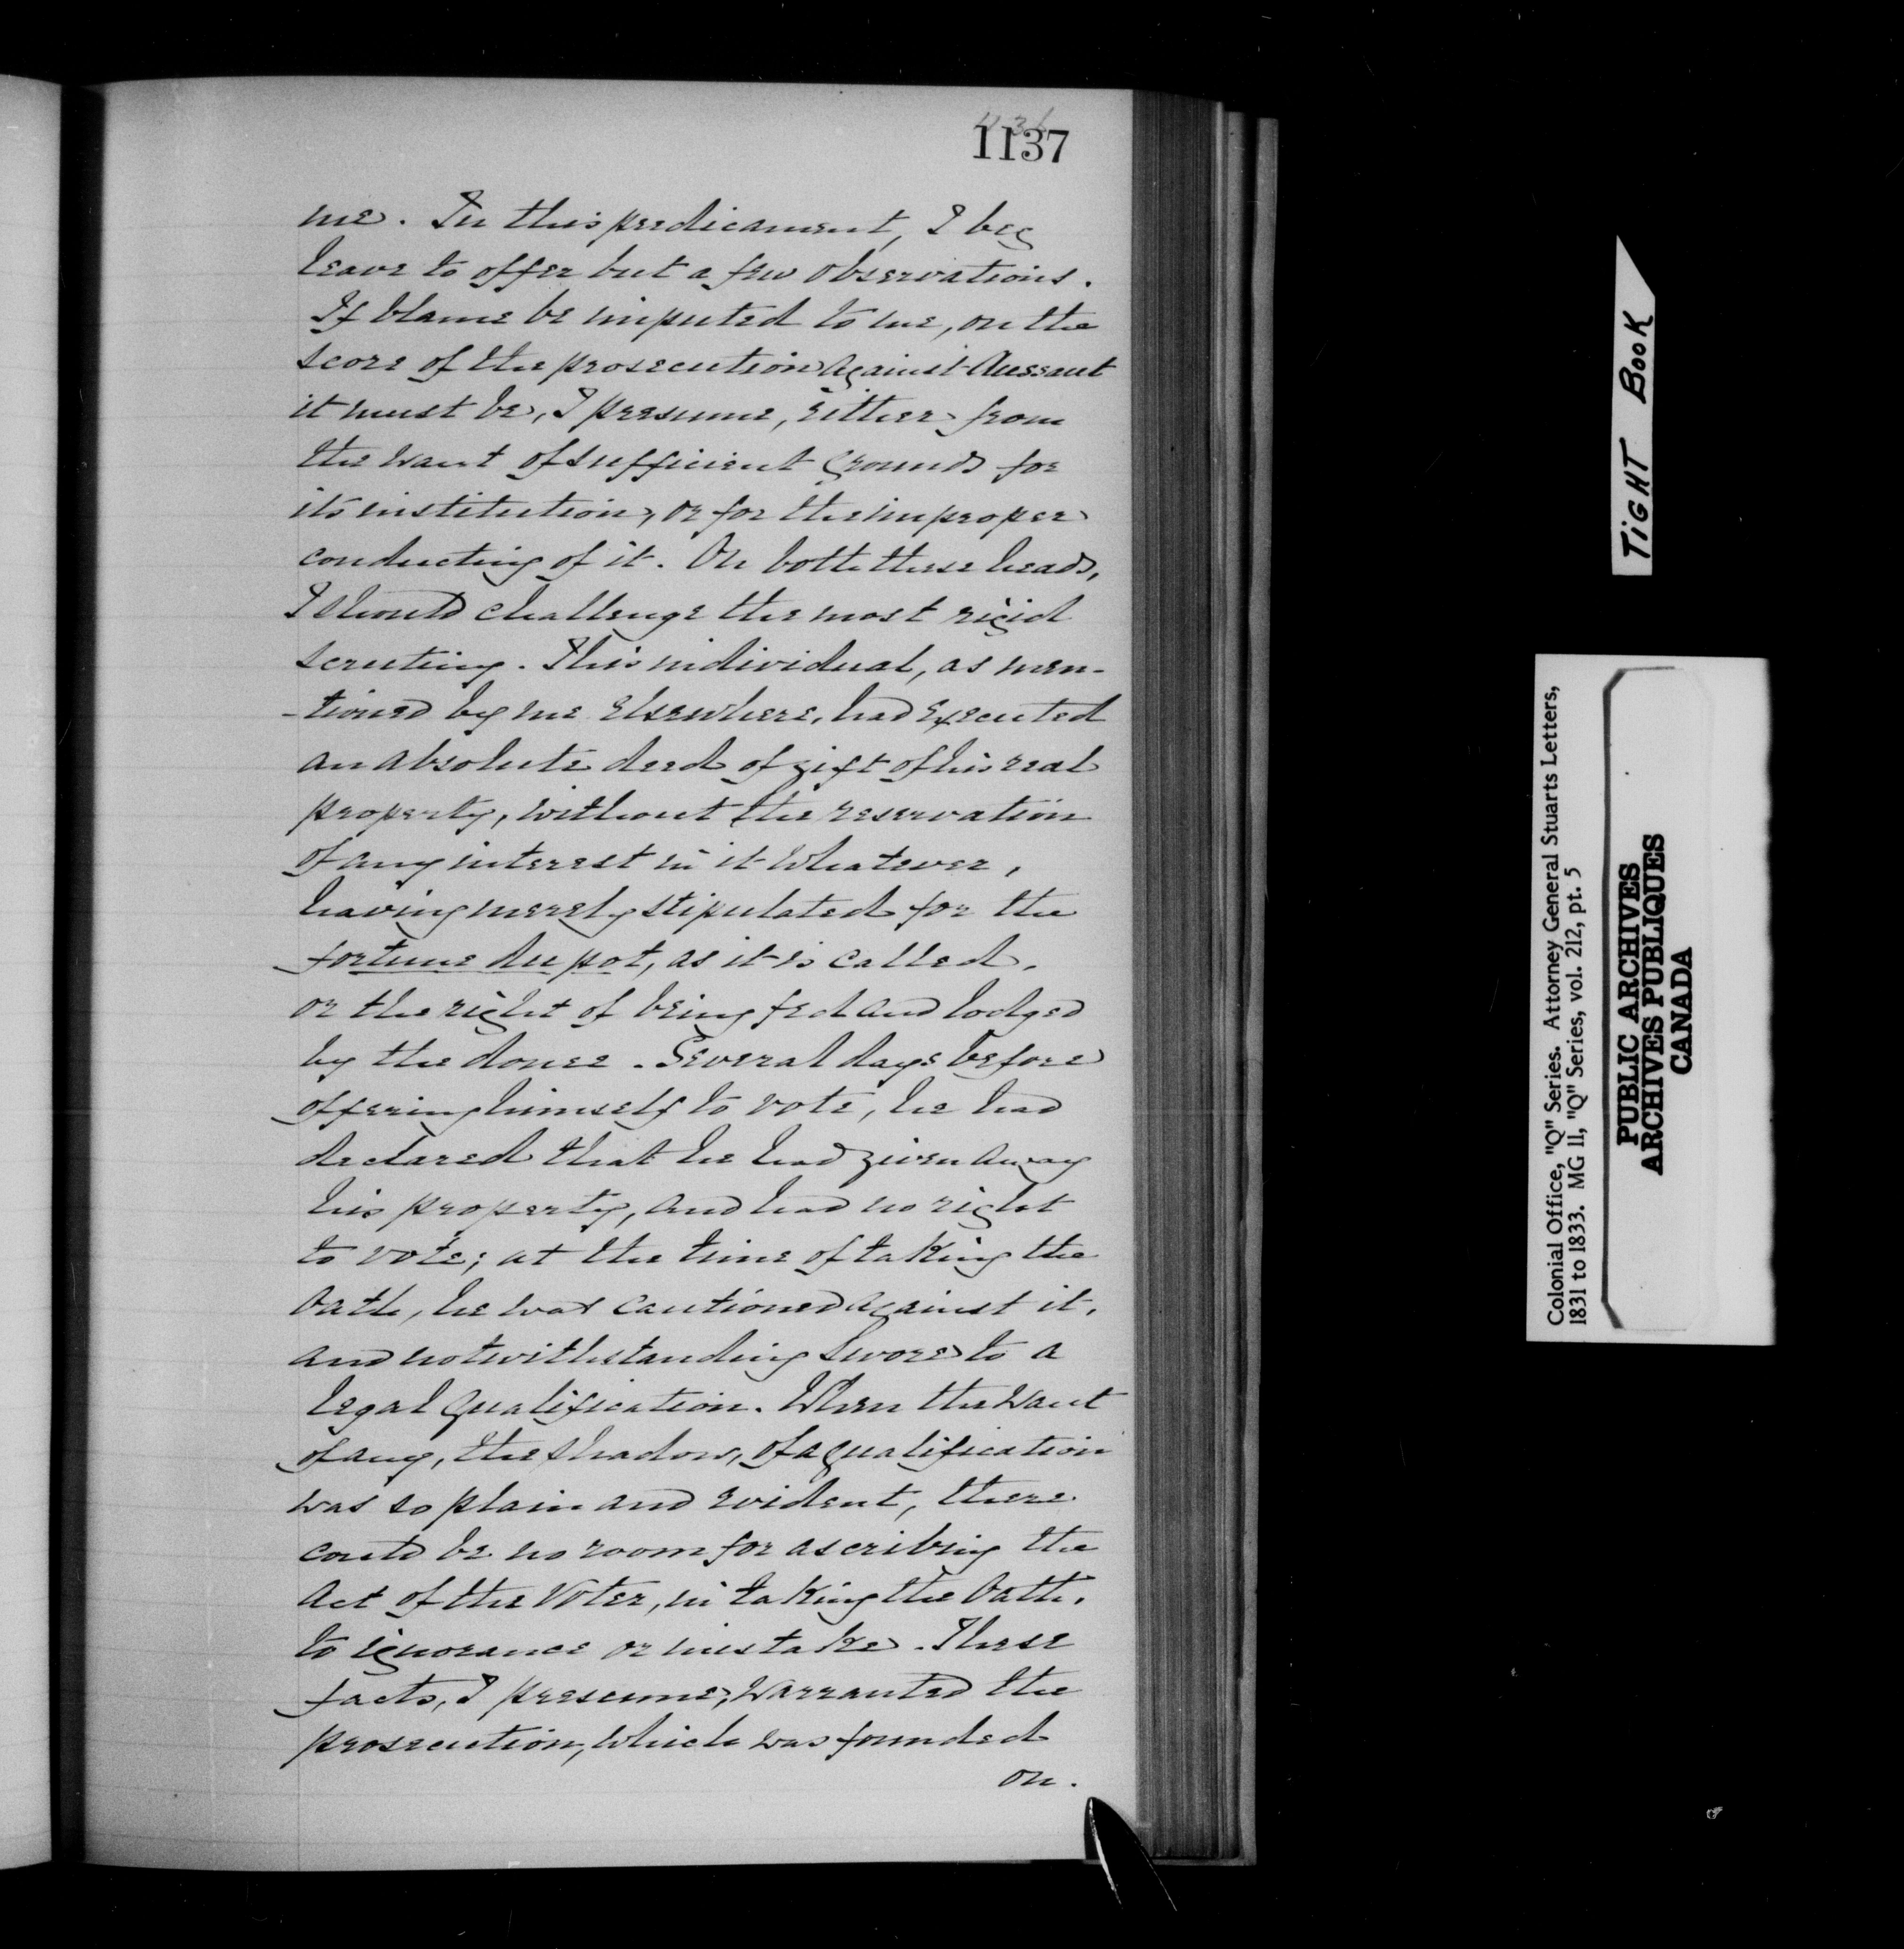 1137
me. In this predicament, I beg
leave to offer but a few observations.
If blame be imputed to me, on the
score of the prosecution against Aussant
it must be, I presume, either from
the want of sufficient grounds for
its institution, or for the improper
conducting of it. On both these heads,
I should challenge the most rigid
scrutiny. This individual, as men-
-tioned by me elsewhere, had executed
an absolute deed of gift of his real
property, without the reservation
of any interest in it whatever,
having merely stipulated for the
fortune du pot, as it is called,
or the right of being fed and lodged
by the donee. Several days before
offering himself to vote, he had
declared that he had given away
his property, and had no right
to vote; at the time of taking the
Oath, he was cautioned against it,
and notwithstanding swore to a
legal qualification. When the want
of any, the shadow, of a qualification
was so plain and evident, there
could be no room for ascribing the
Act of the Voter, in taking the Oath,
to ignorance or mistake. These
facts, I presume, warranted the
prosecution, which was founded
on.
TIGHT BOOK
Colonial Office, "Q" Series. Attorney General Stuarts Letters,
1831 to 1833. MG 11, "Q" Series, vol. 212, pt. 5
PUBLIC ARCHIVES
ARCHIVES PUBLIQUES
CANADA